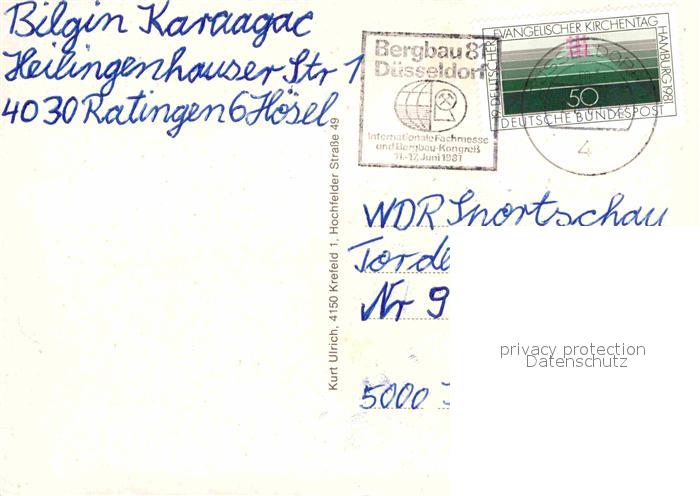 Bilgin Karaagac
Heilingenhauser Str 1
4030 Ratingen 6 Hösel
Bergbau 81
Düsseldorf
Internationale Fachmesse
und Bergbau-Kongreß
11.-17. Juni 1981
4
19. DEUTSCHER EVANGELISCHER KIRCHENTAG HAMBURG 1981
50
DEUTSCHE BUNDESPOST
Kurt Ulrich, 4150 Krefeld 1, Hochfelder Straße 49
WDR Sportschau
Torde
Nr 9
5000
privacy protection
Datenschutz